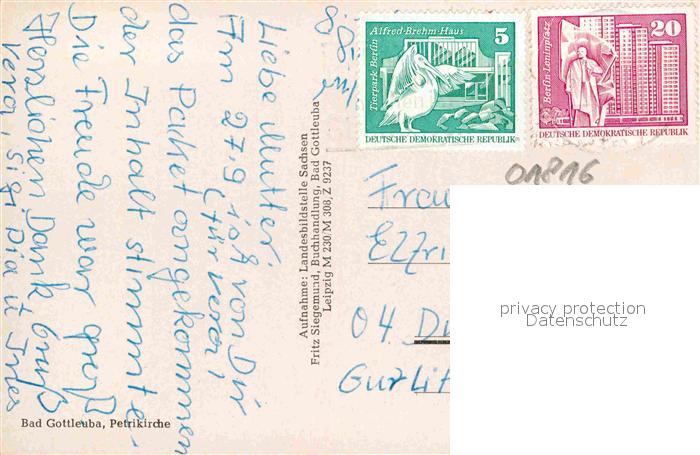 Liebe Mutter!
Am 27.9 ist von Dir
(für Vera)
das Paket angekommen
der Inhalt stimmte.
Die Freude war groß
Herzlichen Dank Gruß
Vera, Sigi Pia u Ines
Bad Gottleuba, Petrikirche
Aufnahme: Landesbildstelle Sachsen
Fritz Siegemund, Buchhandlung, Bad Gottleuba
Leipzig M 230/M 308, Z 9237
Alfred-Brehm-Haus
5
Tierpark Berlin
DEUTSCHE DEMOKRATISCHE REPUBLIK
20
Berlin-Leninplatz
DEUTSCHE DEMOKRATISCHE REPUBLIK
01816
Frau
Elfri
04.
Gurlit
privacy protection
Datenschutz